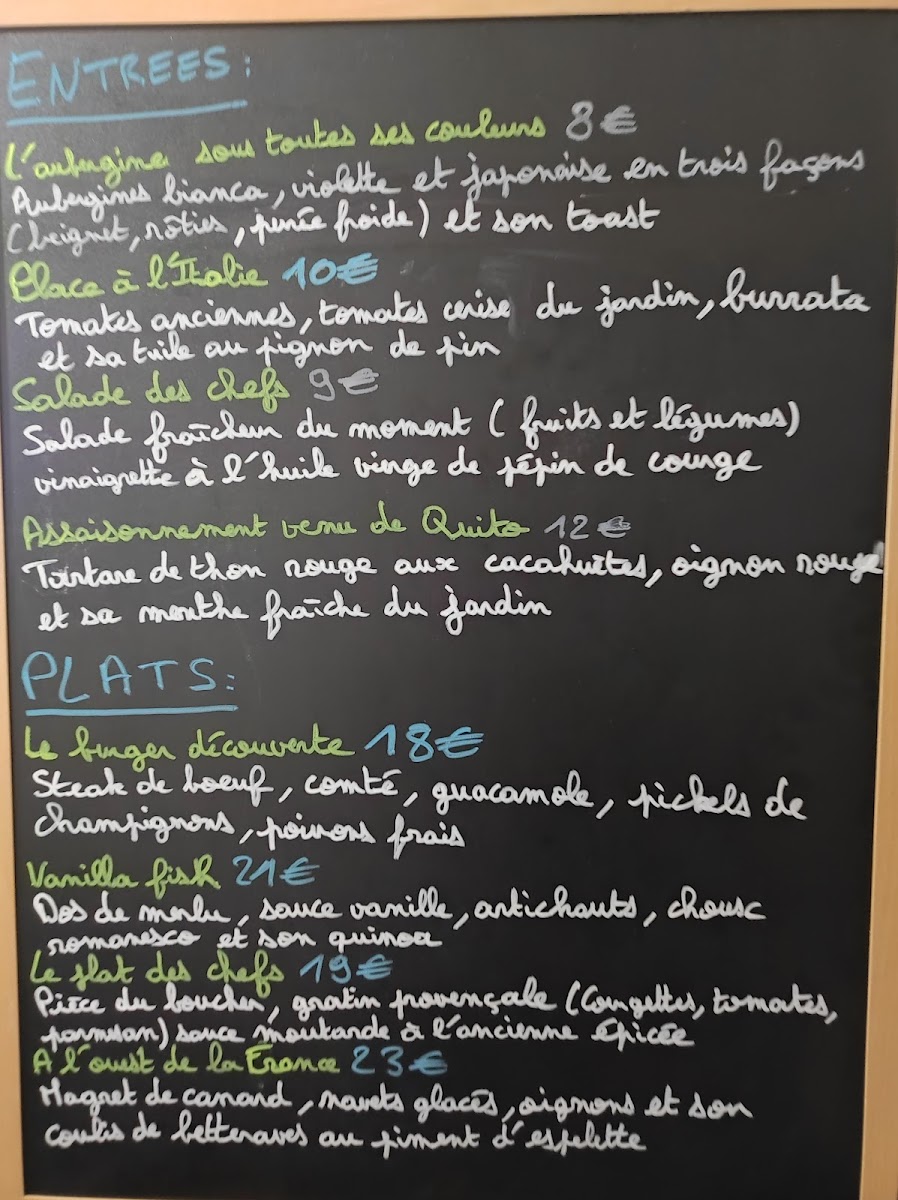 ENTREES:
L'aubergine sous toutes ses couleurs 8€
Aubergines bianca, violette et japonaise en trois façons
(beignet, rôties, purée froide) et son toast
Place à l'Italie 10€
Tomates anciennes, tomates cerise du jardin, burrata
et sa tuile au pignon de pin
Salade des chefs 9€
Salade fraîcheur du moment (fruits et légumes)
vinaigrette à l'huile vierge de pépin de courge
Assaisonnement venu de Quito 12€
Tartare de thon rouge aux cacahuètes, oignon rouge
et sa menthe fraîche du jardin
PLATS:
Le burger découverte 18€
Steak de boeuf, comté, guacamole, pickels de
champignons, poivrons frais
Vanilla fish 21€
Dos de merlu, sauce vanille, artichauts, choux
romanesco et son quinoa
Le plat des chefs 19€
Pièce du boucher, gratin provençale (Courgettes, tomates,
parmesan) sauce moutarde à l'ancienne épicée
A l'ouest de la France 23€
Magret de canard, navets glacés, oignons et son
coulis de betteraves au piment d'espelette